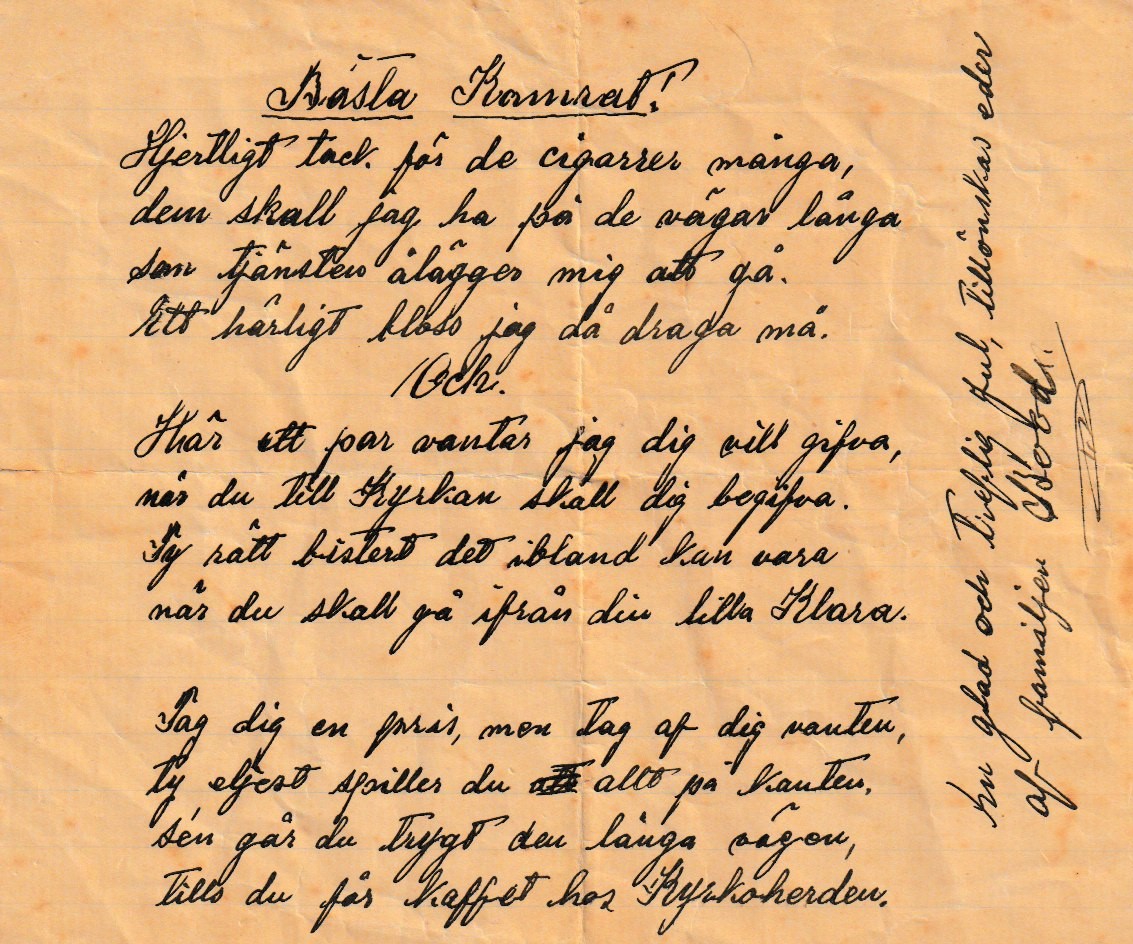 Bästa Kamrat!
Hjertligt tack för de cigarrer många,
dem skall jag ha på de vägar långa
som tjänsten ålägger mig att gå.
Ett härligt bloss jag då draga må.
Och.
Här ett par vantar jag dig vill gifva,
när du till Kyrkan skall dig begifva.
Ty rätt bistert det ibland kan vara
när du skall gå ifrån din lilla Klara.
Tag dig en pris, men tag af dig vanten,
ty eljest spiller du allt på kanten.
sén går du trygt den långa vägen,
tills du får kaffet hos Kyrkoherden.
En glad och Treflig jul, tillönskas eder
af familjen